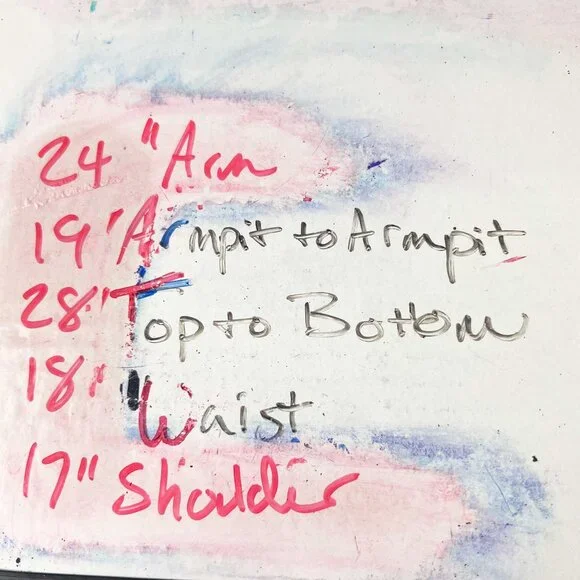 24" Arm
19" Armpit to Armpit
28" Top to Bottom
18" Waist
17" Shoulder